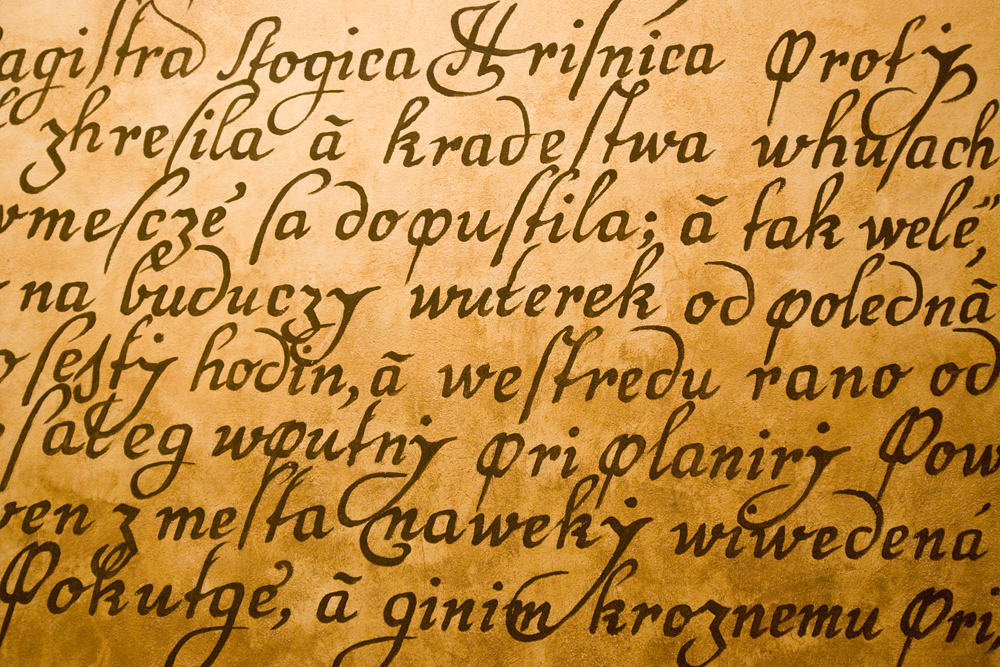 agiſtra ſtogica Hriſnica Proti
zhreſila ã kradeſtwa whuſach
wmeſczé ſa dopuſtila; ã tak welé
na buduczy wuterek od polednã
ſeſty hodin, ã weſtredu rano od
ſateg wputny pri planiry Pow
ven z meſta naweky wiwedená
Pokutge, ã ginim kroznemu Pri